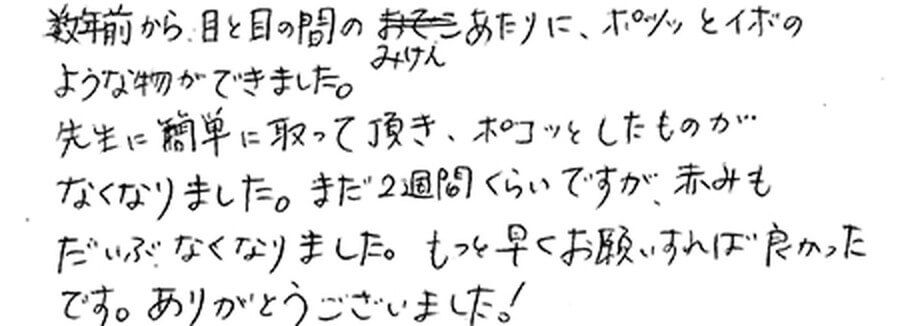 数年前から、目と目の間の おでこ あたりに、ポツッとイボの
みけん
ような物ができました。
先生に簡単に取って頂き、ポコッとしたものが
なくなりました。まだ2週間くらいですが、赤みも
だいぶなくなりました。もっと早くお願いすれば良かった
です。ありがとうございました!